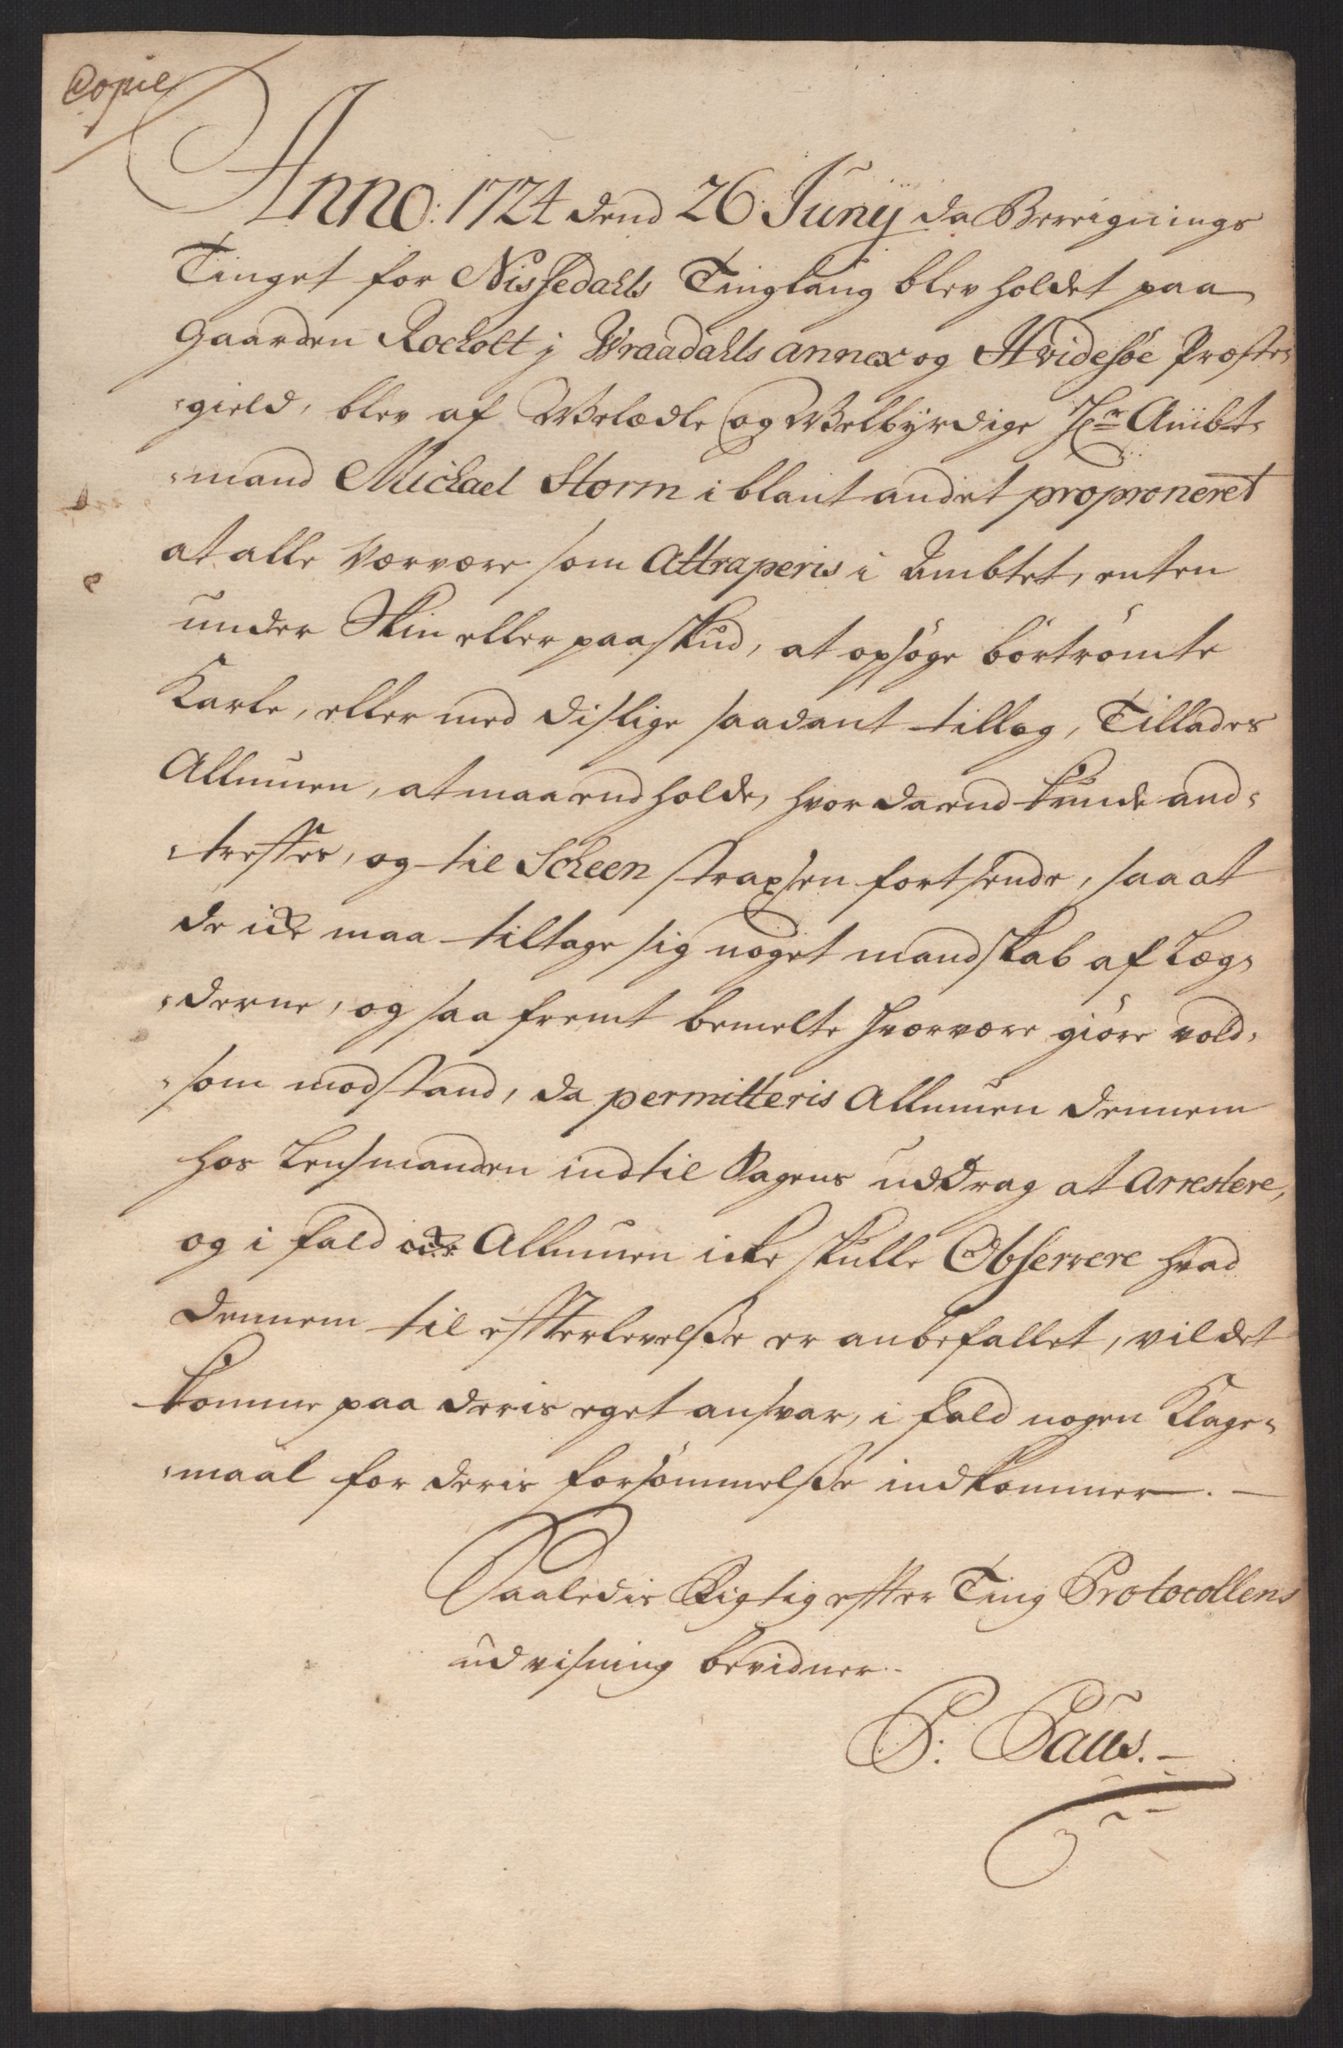 Copie
Anno: 1724 dend 26 Junij da Bereignings
Tinget for Nissedahls Tinglaug blev holdet paa
Gaarden Rocholt j Wraadahls annex og Hvidesøe Præste-
-gield, blev af Welædle og Welbyrdige Hr Ambt-
-mand Michael Storm i blant andet proproneret
at alle Værvere som Attraperis i Ambtet, enten
under Skin eller paaskud, at opsøge börtrömte
Karle, eller med dislige saadant tilleg, Tillades
Allmuen, at maa endholde, hvor da end kunde and-
-treffes, og til Scheen straxsen fortsende, saa at
de icke maa tiltage sig noget mandskab af Læg-
-derne, og saa fremt bemelte Hværvere giöre vold-
-som modstand, da permitteris Allmuen dennem
hos Lensmanden indtil Sagens uddrag at Arrestere,
og i fald Allmuen icke skulle Observere hvad
dennem til effterlevelße er anbefallet, vil det
komme paa deris eget ansvar, i fald nogen Klage-
-maal for deris forsömmelße indkommer. —
Saaledis Rigtig effter Ting Protocollens
udvisning bevidner.
P: Paus. —